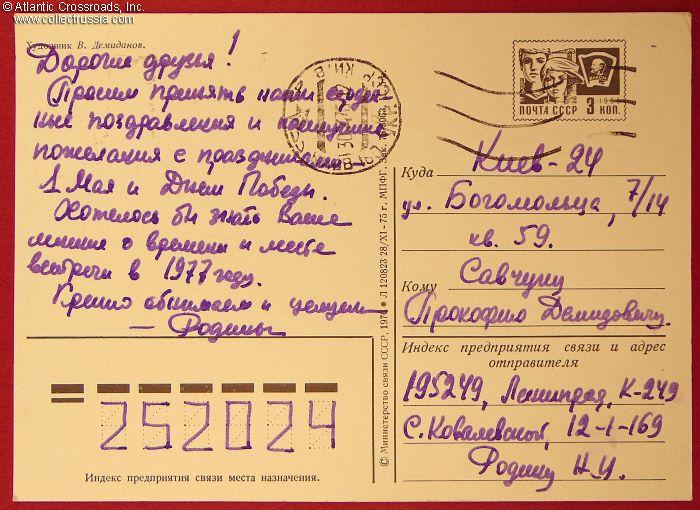 © Atlantic Crossroads, Inc.
www.collectrussia.com
Художник В. Демиданов.
Дорогие друзья!
Просим принять наши
поздравления и
пожелания с праздниками –
1 Мая и Днем Победы.
Хотелось бы знать Ваше
мнение о времени и месте
встречи в 1977 году.
Крепко обнимаем и целуем
— Родины
252024
Индекс предприятия связи места назначения.
© Министерство связи СССР, 1976 ● Л 120823 28/XI-75 г. МПФГ. Зак.
ПОЧТА СССР 3 КОП.
Куда Киев-24
ул. Богомольца, 7/14
кв. 59.
Кому Савчуку
Прокофию Демидовичу.
Индекс предприятия связи и адрес
отправителя
195249, Ленинград, К-249
С. Ковалевской, 12-1-169
Родину Н.И.